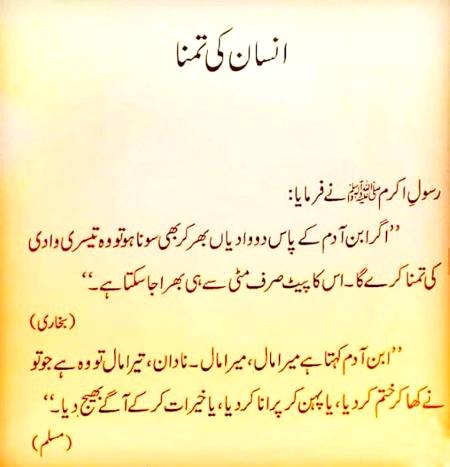 انسان کی تمنا
رسولِ اکرم ﷺ نے فرمایا:
”اگر ابن آدم کے پاس دو وادیاں بھر کر بھی سونا ہو تو وہ تیسری وادی
کی تمنا کرے گا۔ اس کا پیٹ صرف مٹی سے ہی بھرا جا سکتا ہے۔“
(بخاری)
”ابن آدم کہتا ہے میرا مال، میرا مال۔ نادان، تیرا مال تو وہ ہے جو تو
نے کھا کر ختم کر دیا، یا پہن کر پرانا کر دیا، یا خیرات کر کے آگے بھیج دیا۔“
(مسلم)